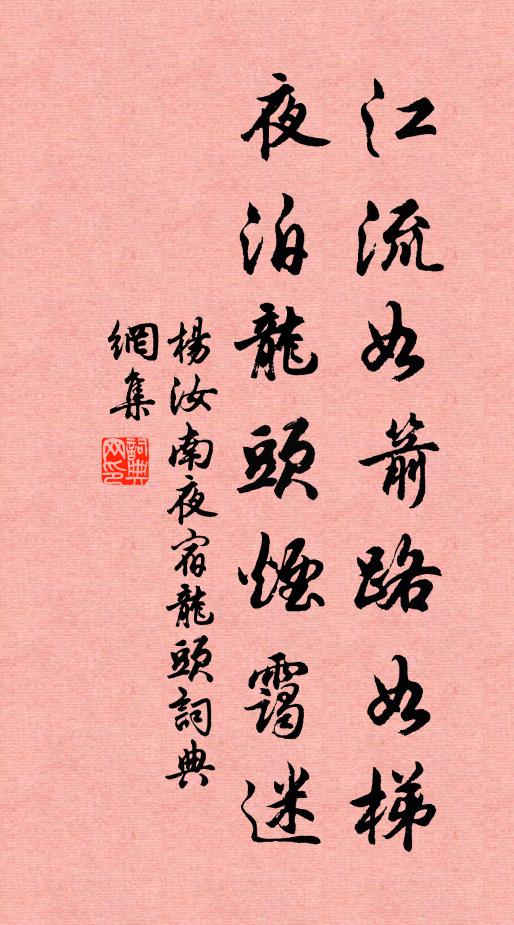 江流如箭路如梯
夜泊龍頭煙靄迷
楊汝南夜宿龍頭詞典
網集
詞典
网印